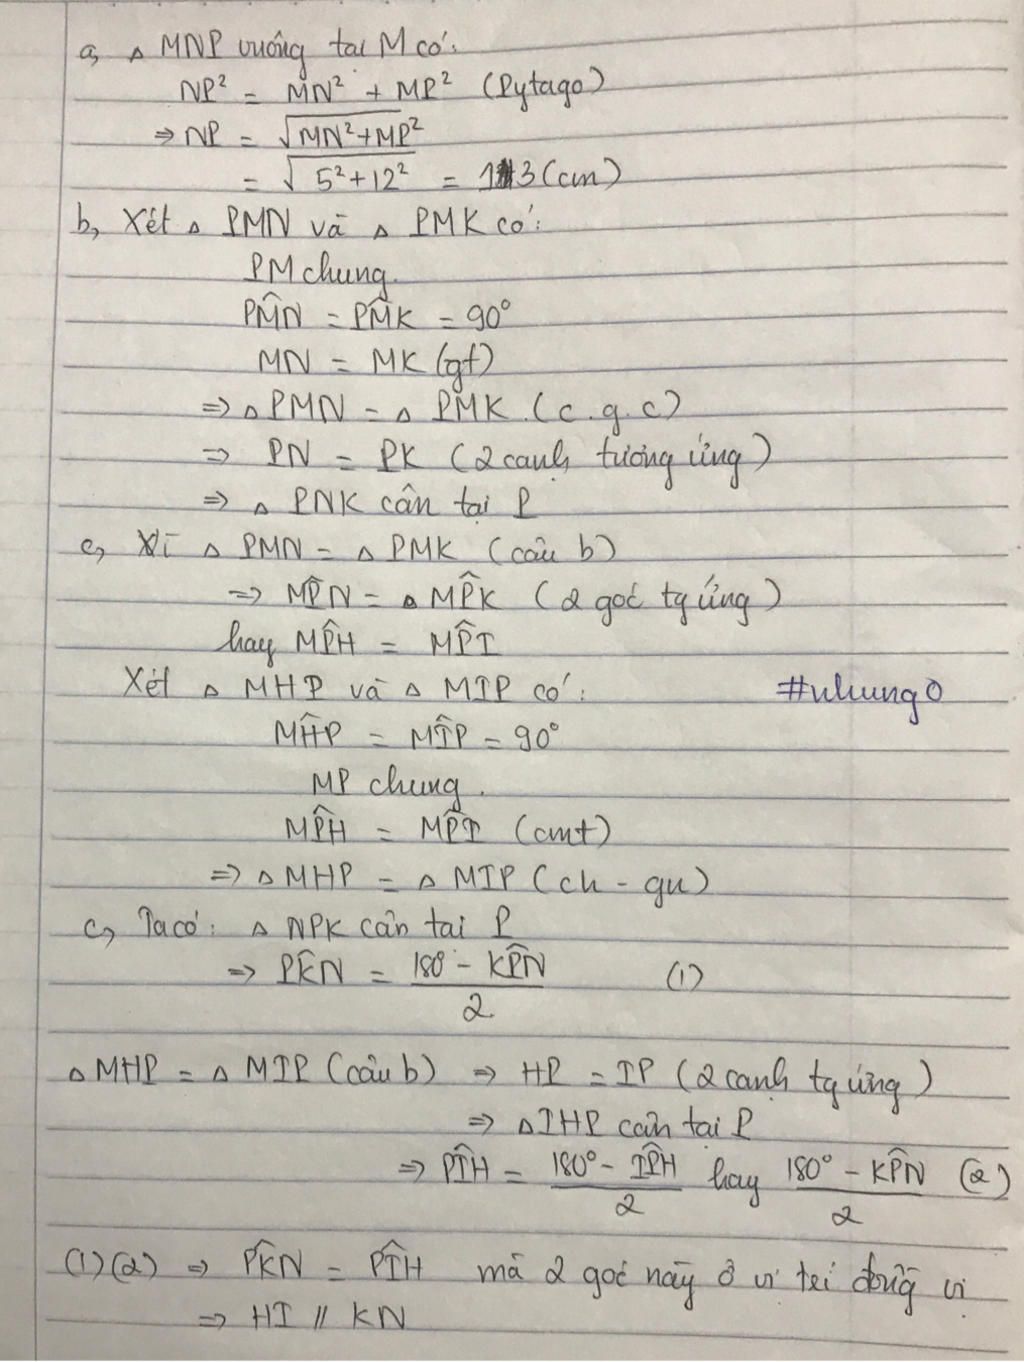 a, △ MNP vuông tại M có:
NP² = MN² + MP² (Pytago)
⇒ NP = √MN²+MP²
= √5²+12² = 13 (cm)
b, Xét △ PMN và △ PMK có:
PM chung.
PM̂N = PM̂K = 90°
MN = MK (gt)
⇒ △ PMN = △ PMK (c.g.c)
⇒ PN = PK (2 cạnh tương ứng)
⇒ △ PNK cân tại P
c, Vì △ PMN = △ PMK (câu b)
⇒ MP̂N = △ MP̂K (2 góc tg ứng)
hay MP̂H = MP̂I
Xét △ MHP và △ MIP có: #nhung0
MĤP = MÎP = 90°
MP chung.
MP̂H = MP̂I (cmt)
⇒ △ MHP = △ MIP (ch - gn)
c, Ta có: △ NPK cân tại P
⇒ PK̂N = (180° - KP̂N)/2 (1)
△ MHP = △ MIP (câu b) ⇒ HP = IP (2 cạnh tg ứng)
⇒ △ IHP cân tại P
⇒ PÎH = (180° - IP̂H)/2 hay (180° - KP̂N)/2 (2)
(1)(2) ⇒ PK̂N = PÎH mà 2 góc này ở vị trí đồng vị
⇒ HI // KN